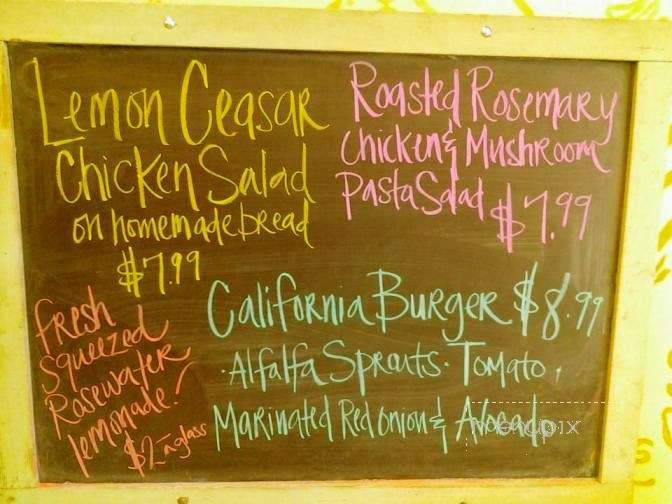 Lemon Ceasar
Chicken Salad
on homemade bread
$7.99
Roasted Rosemary
Chicken & Mushroom
Pasta Salad $7.99
Fresh
Squeezed
Rosewater
lemonade!
$2 a glass
California Burger $8.99
· Alfalfa Sprouts · Tomato,
Marinated Red Onion & Avocado
menupix